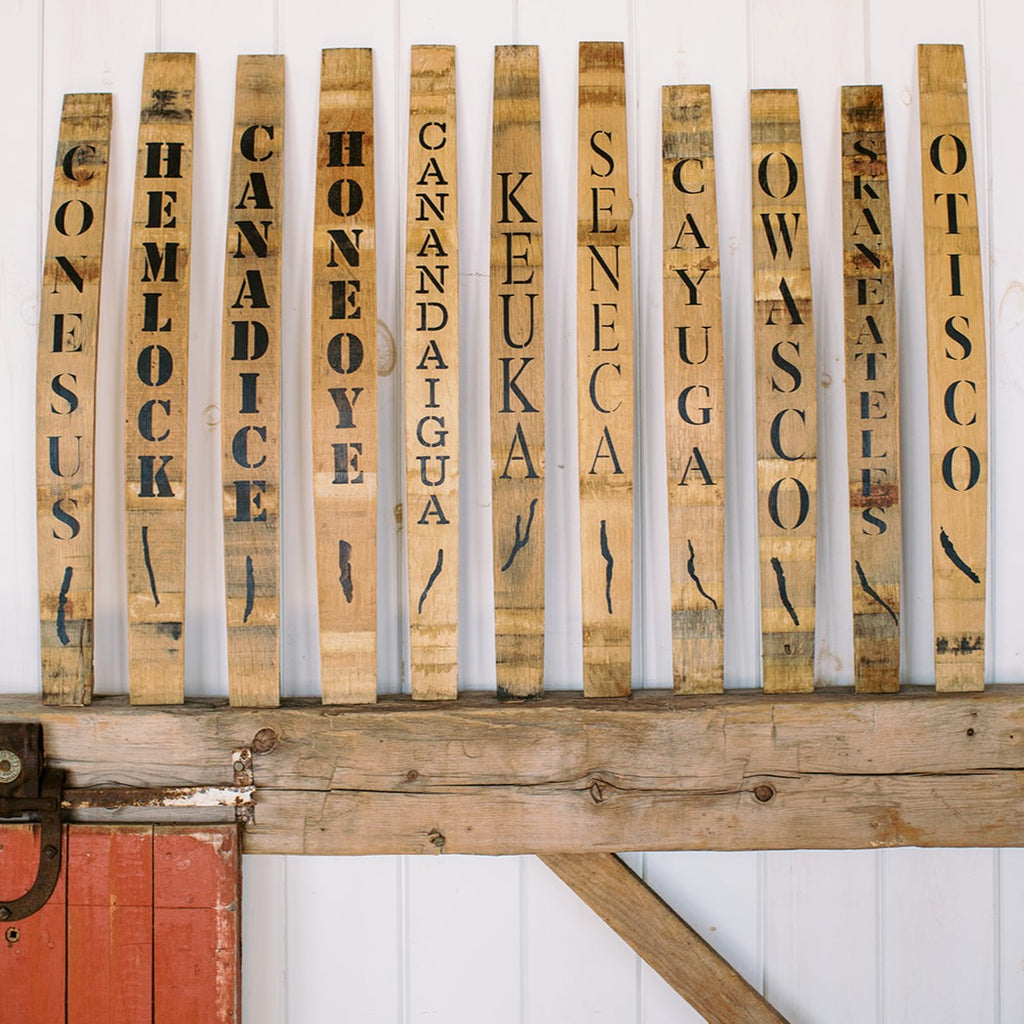 CONESUS
HEMLOCK
CANADICE
HONEOYE
CANANDAIGUA
KEUKA
SENECA
CAYUGA
OWASCO
SKANEATELES
OTISCO